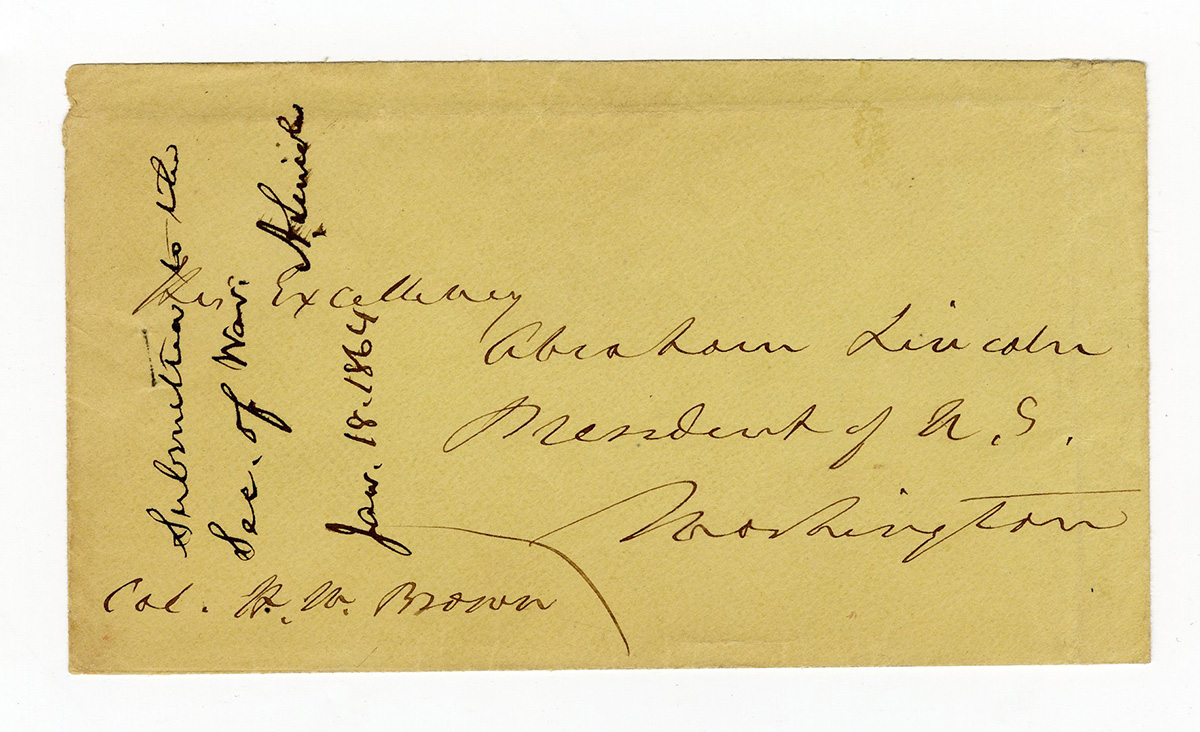 His Excellency
Abraham Lincoln
President of U.S.
Washington
Col. H. W. Brown
Submitted to the
Sec. of War.
A. Lincoln
Jan. 18. 1864